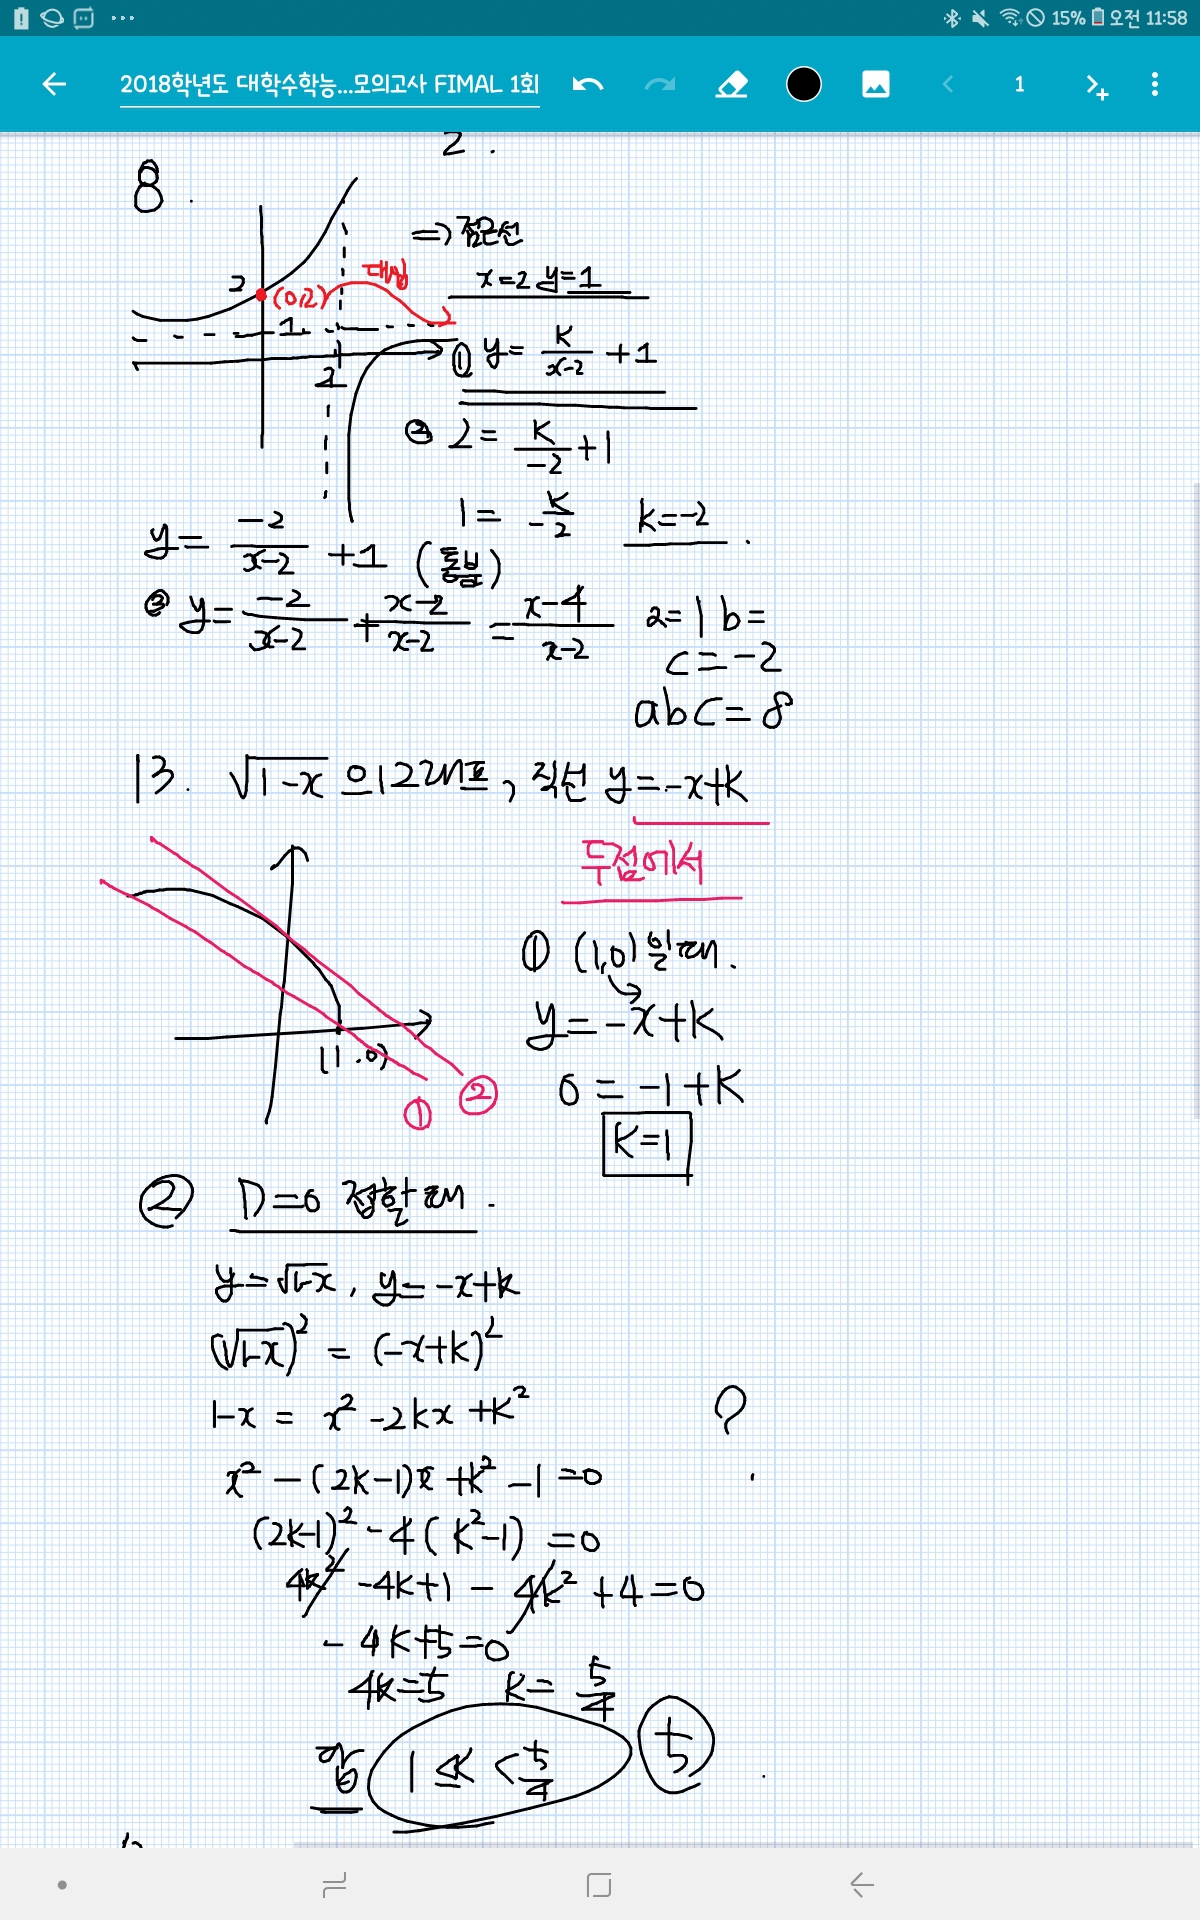 15% 오전 11:58
2018학년도 대학수학능...모의고사 FIMAL 1회
1
2.
8.
⇒ 점근선
x=2 y=1
2 (0,2) 대입
1
2
① y= k/(x-2) +1
② 2= k/(-2) +1
1= -k/2 k=-2.
y= -2/(x-2) +1 (통분)
③ y= -2/(x-2) + (x-2)/(x-2) = (x-4)/(x-2) a=1 b=
c=-2
abc=8
13. √(1-x) 의 그래프, 직선 y=-x+k
두점에서
① (1,0)일때.
y=-x+k
(1.0)
0=-1+k
① ②
k=1
② D=0 접할때.
y=√(1-x), y=-x+k
(√(1-x))² = (-x+k)²
1-x = x²-2kx+k² ?
x²-(2k-1)x+k²-1=0
(2k-1)²-4(k²-1)=0
4k²-4k+1-4k²+4=0
-4k+5=0
4k=5 k= 5/4
답 1≤k<5/4 5